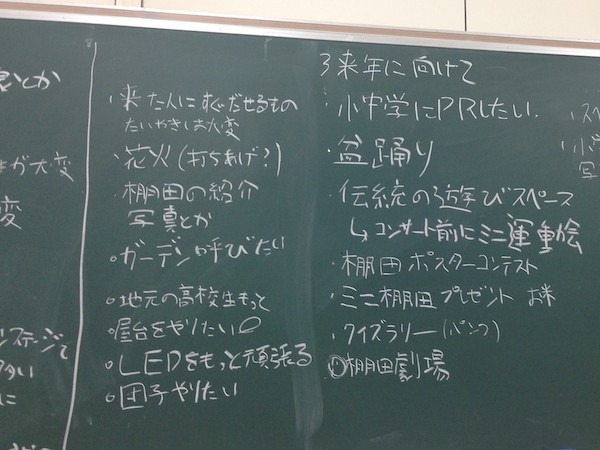 良いとか
が大変
変
ンステージで
多い
に
・来た人にすぐだせるもの
たいやきは大変
・花火(打ちあげ?)
・棚田の紹介
写真とか
・ガーデン呼びたい
・地元の高校生もっと
・屋台をやりたい
・LEDをもっと頑張る
・団子やりたい
3来年に向けて
・小中学にPRしたい
・盆踊り
・伝統の遊びスペース
↳コンサート前にミニ運動会
・棚田ポスターコンテスト
・ミニ棚田プレゼント お米
・クイズラリー(パンフ)
棚田劇場
・スペ
・小学
写